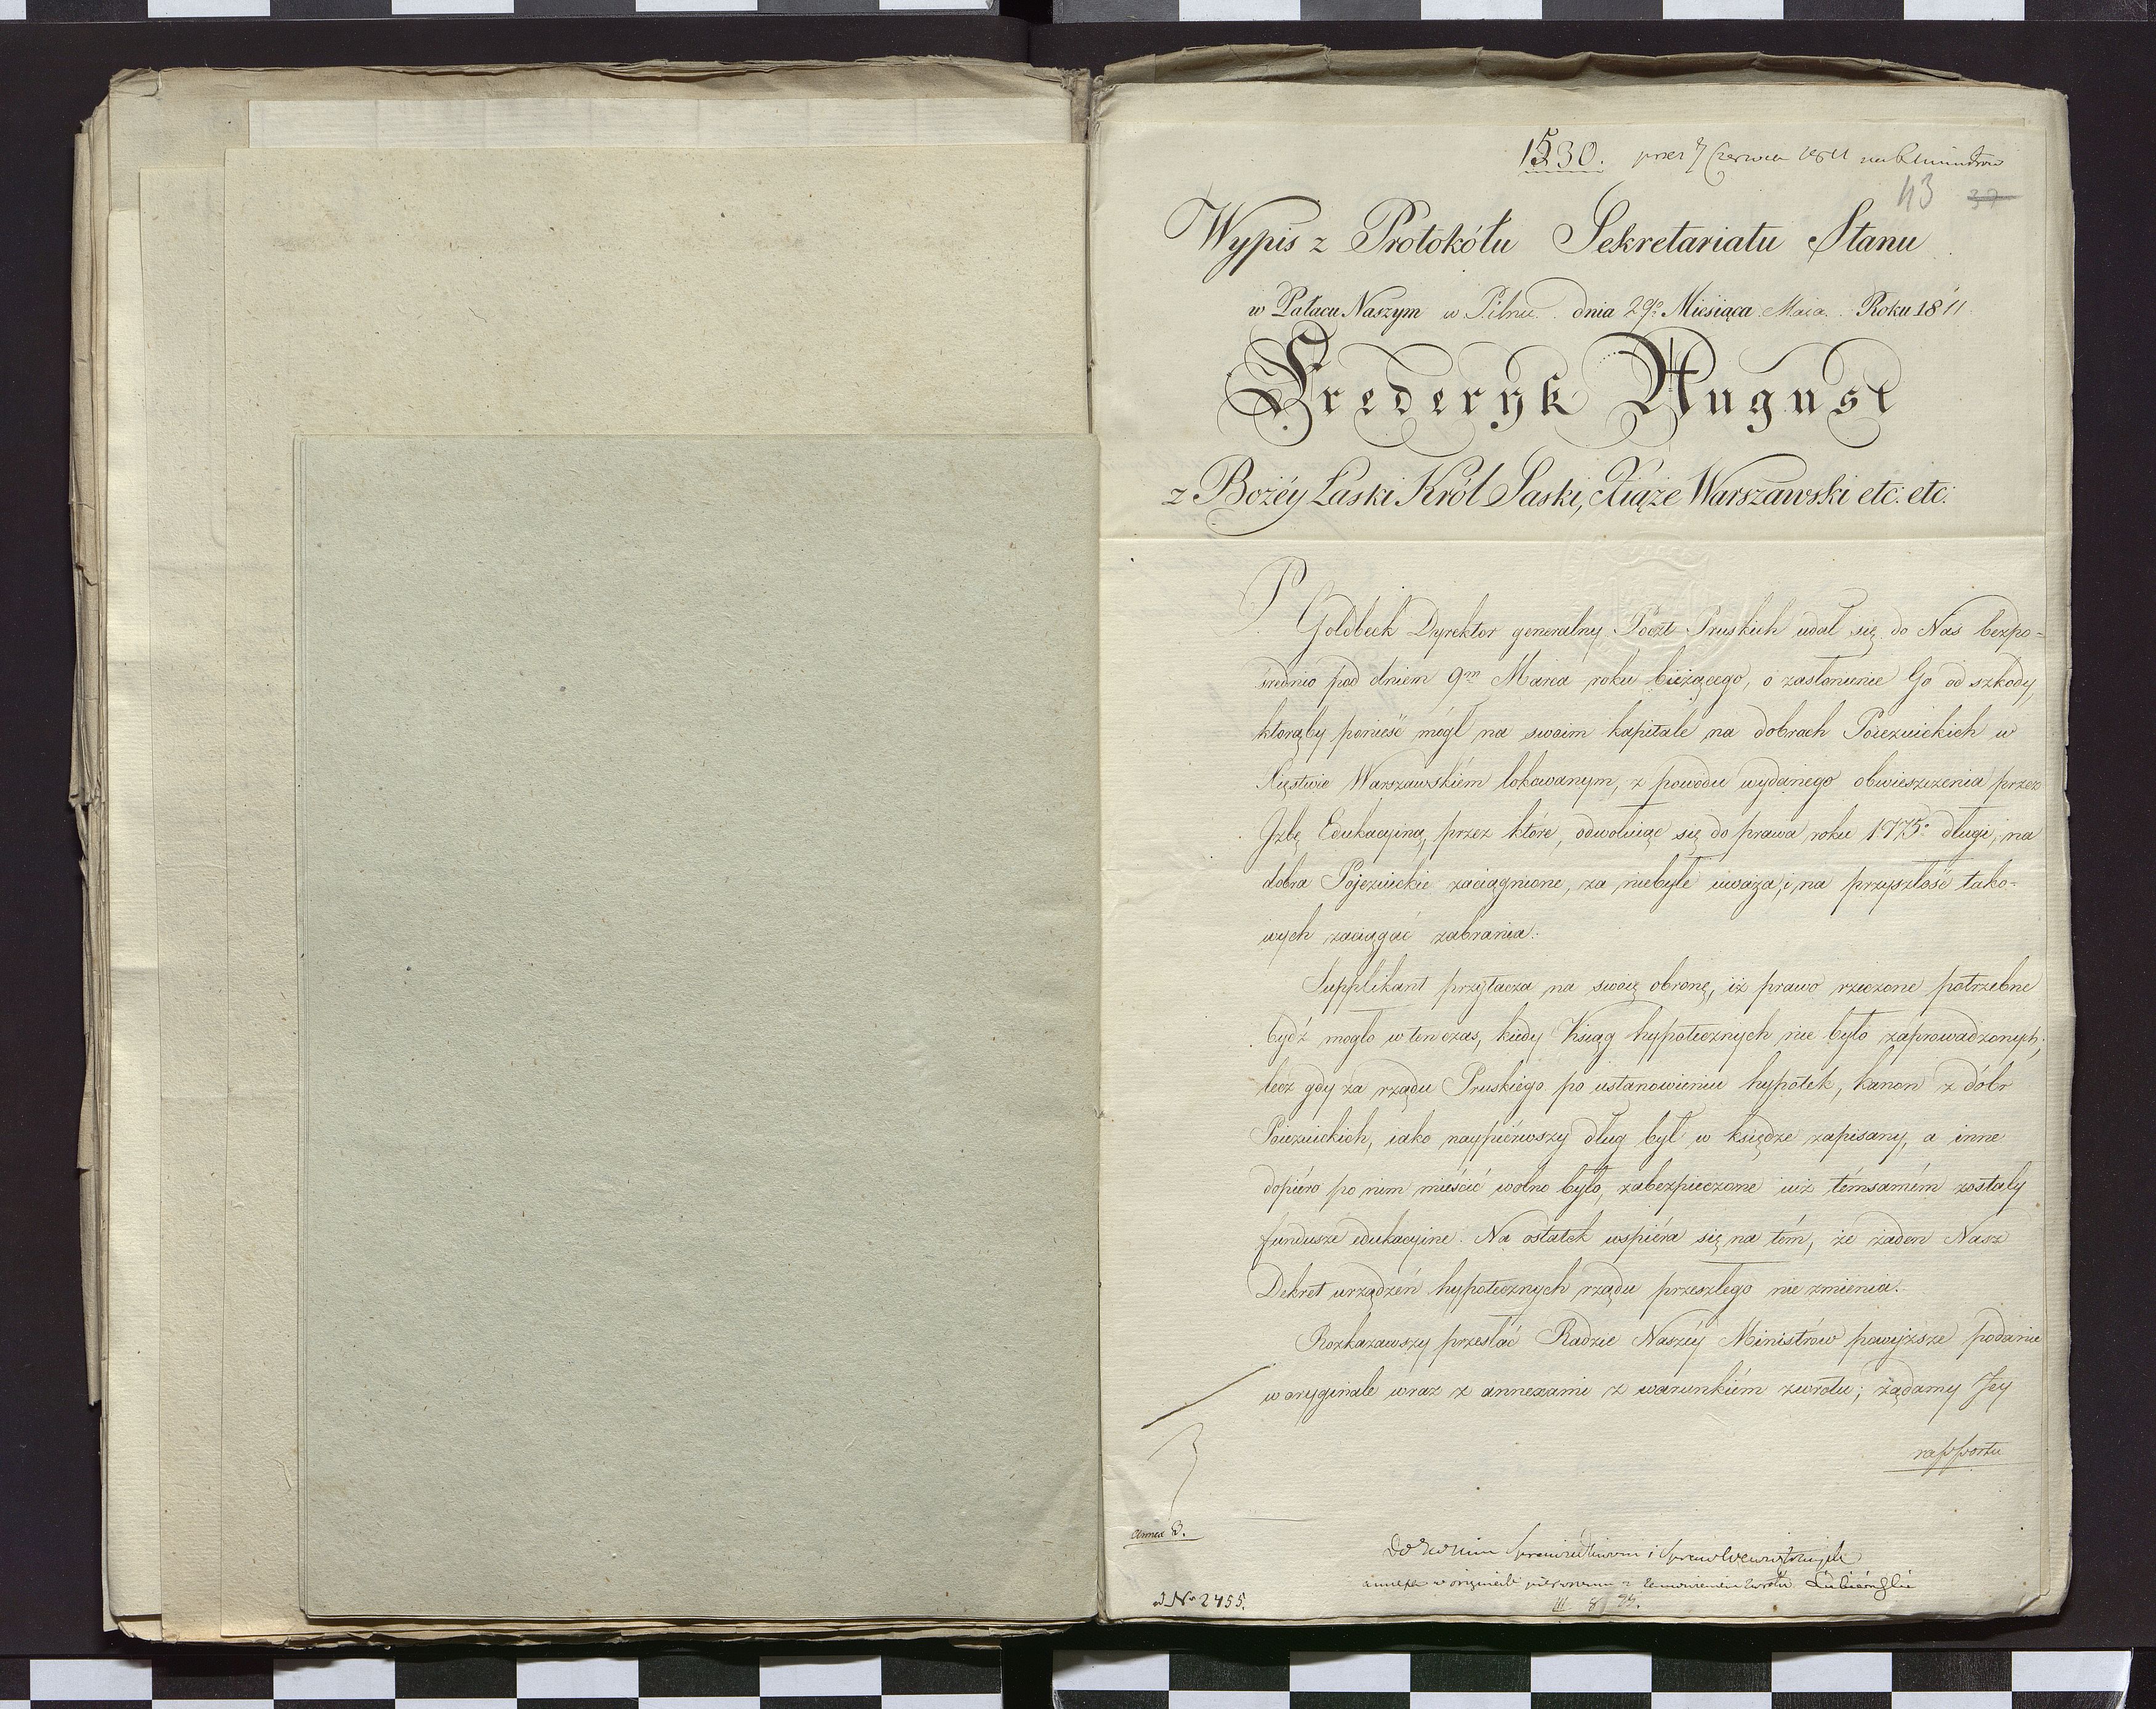 1530. przez 7 Czerwca 1811
43 37
Wypis z Protokółu Sekretariatu Stanu
w Pałacu Naszym w Pilnic. dnia 29º Miesiąca Maia. Roku 1811
Frederyk August
z Bożéy Łaski Król Saski, Xiąże Warszawski etc: etc:
P
Goldbeck Dyrektor generalny Poczt Pruskich udał się do Nas bezpo-
średnio pod dniem 9m Marca roku bieżącego, o zasłonienie Go od szkody,
którąby ponieść mógł na swoim kapitale na dobrach Poiezuickich w
Xięstwie Warszawskiém lokowanym, z powodu wydanego obwieszczenia przez
Jzbę Edukacyiną, przez które, odwołuiąc się do prawa roku 1775º długi, na
dobra Pojezuickie zaciągnione, za niebyłe uważa, i na przyszłość tako-
wych zaciągać zabrania.
Supplikant przytacza na swoię obronę, iż prawo rzeczone potrzebne
bydź mogło w ten czas, kiedy Ksiąg hypotecznych nie było zaprowadzonych;
lecz gdy za rządu Pruskiego po ustanowieniu hypotek, kanon z dóbr
Poiezuickich, iako naypiérwszy dług był w księdze zapisany, a inne
dopiéro po nim mieścić wolno było, zabezpieczone iuż témsamém zostały
fundusze edukacyine. Na ostatek wspiéra się na tém, że żaden Nasz
Dekret urządzeń hypotecznych rządu przeszłego nie zmienia.
Rozkazawszy przesłać Radzie Naszéy Ministrów powyższe podanie
w oryginale wraz z annexami z warunkiém zwrotu; żądamy Jey
rapportu
annex 3.
Do JW Ministrów Sprawiedliwości i Spraw Wewnętrznych
annexa w originale pierwszemu z zamówieniem zwrotu Łubieński
ad Nº 2455.
III 8